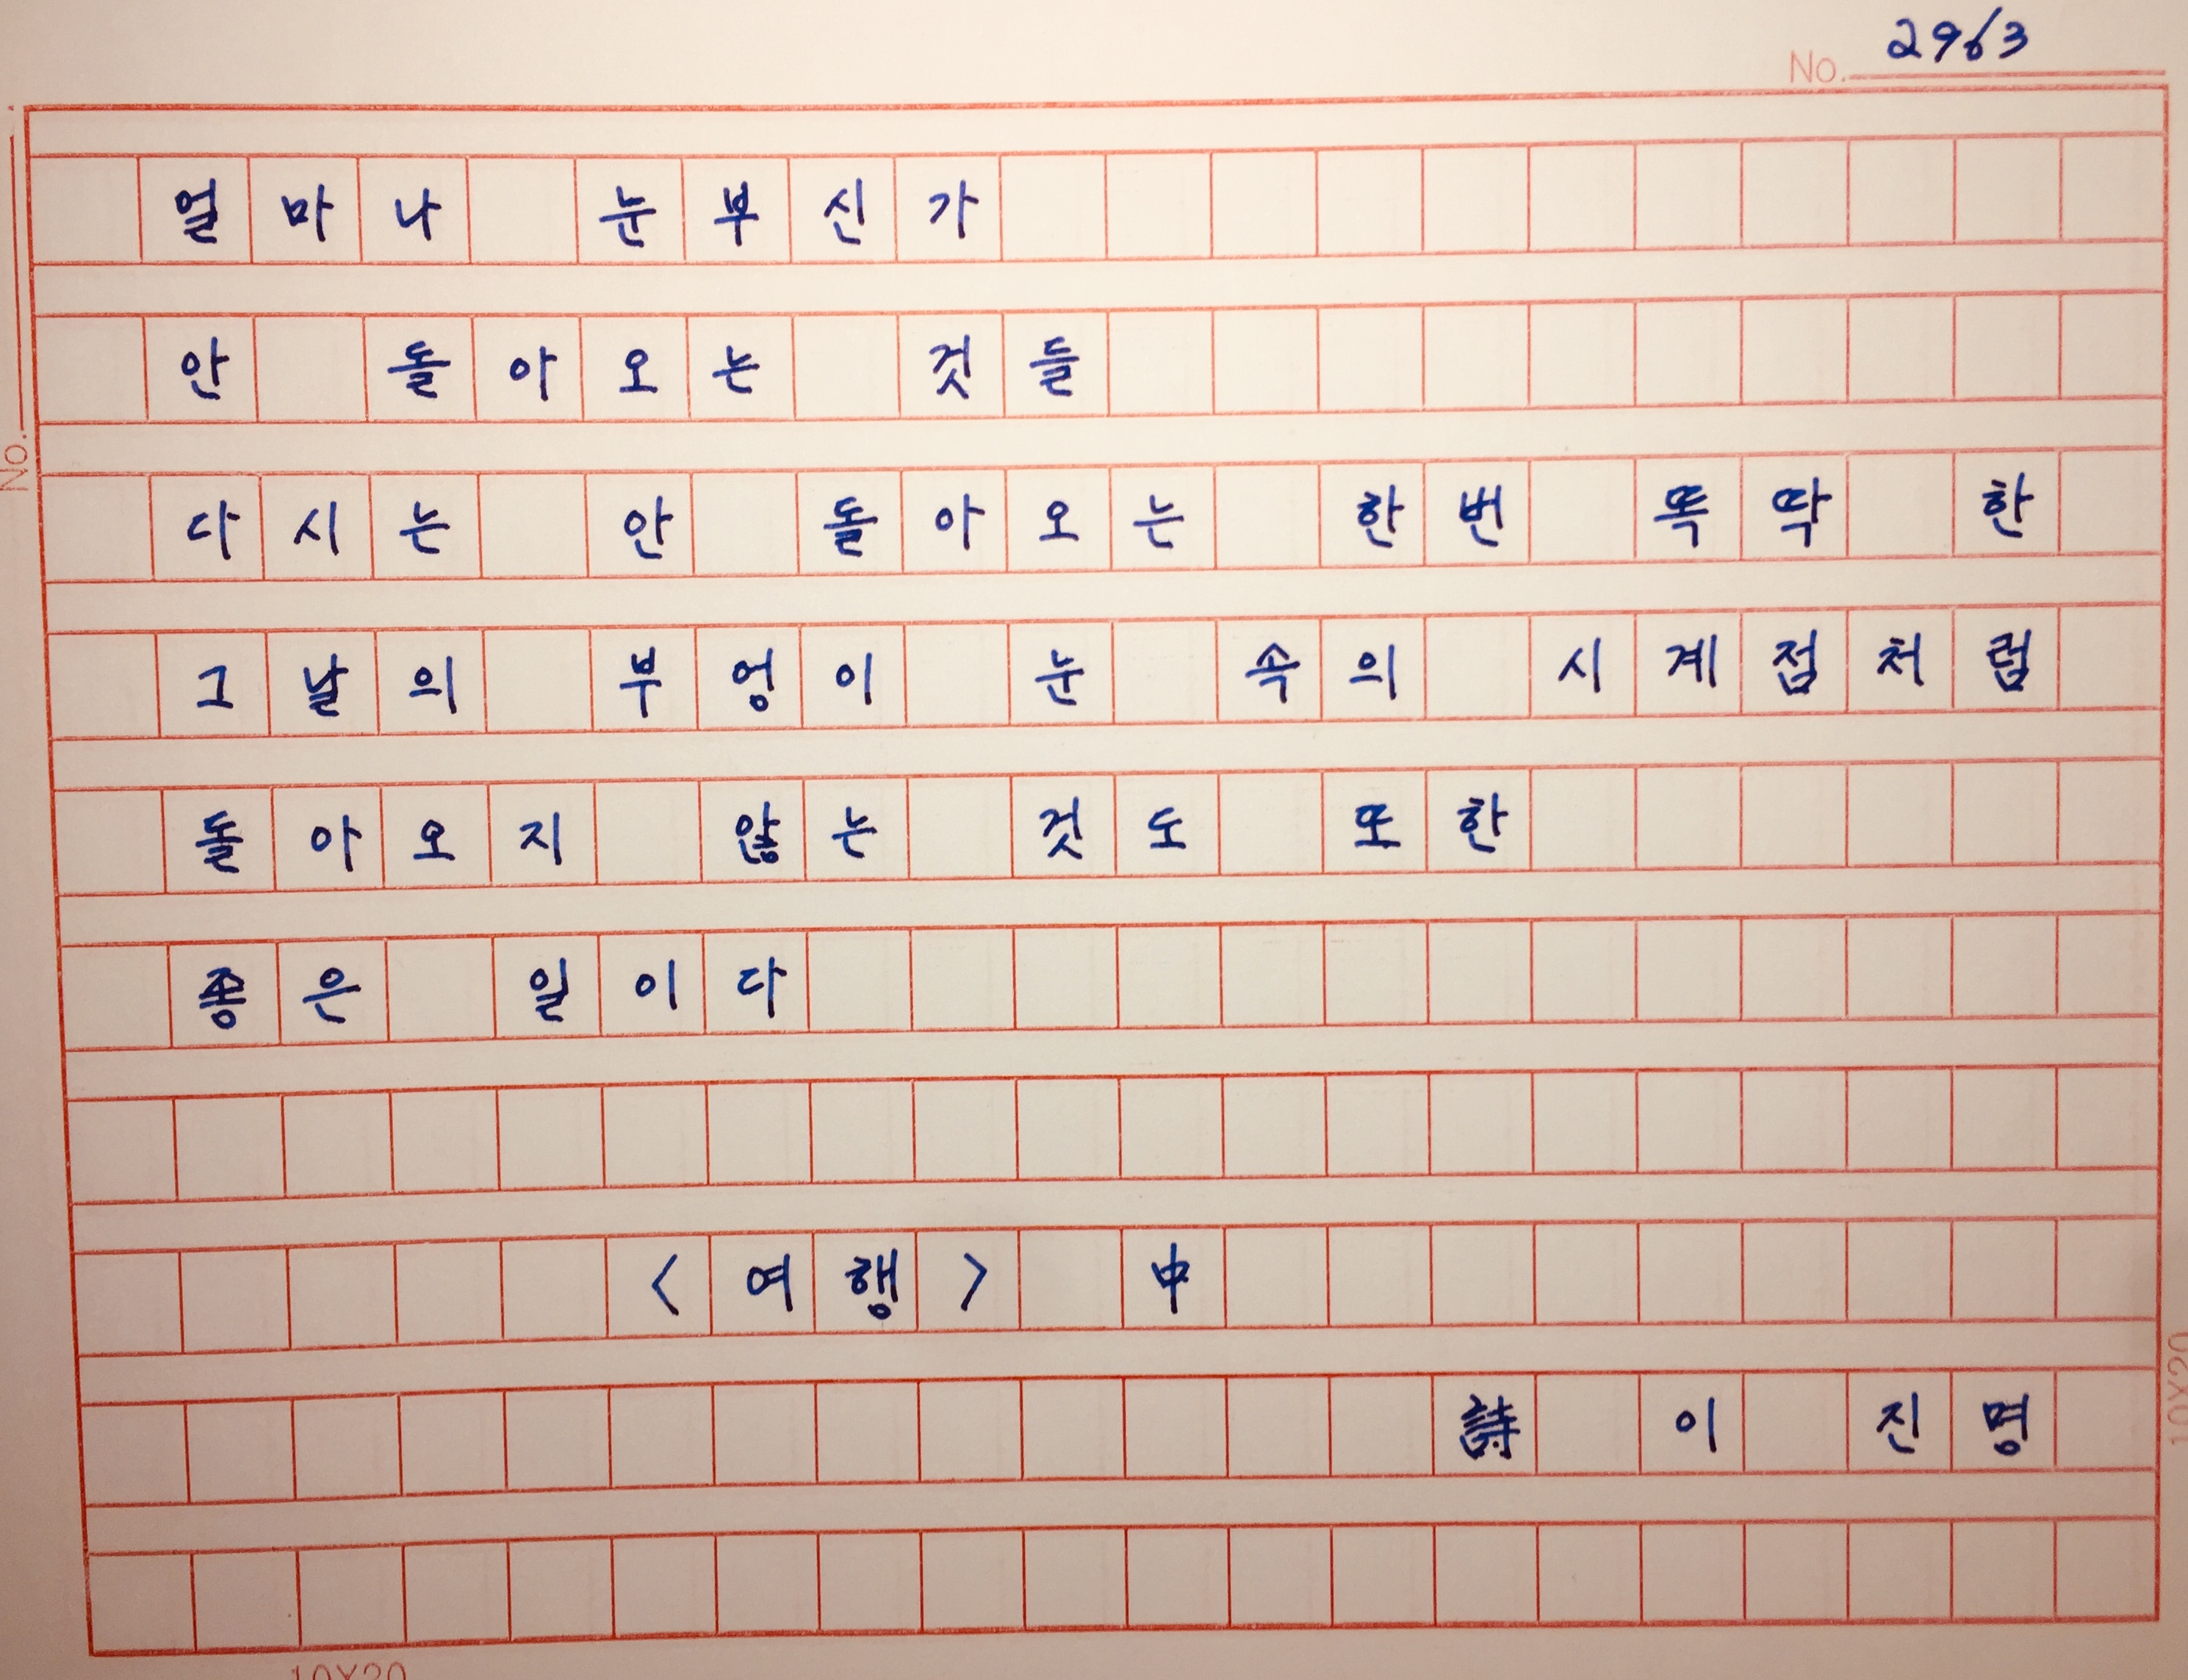 No. 2963
얼마나 눈부신가
안 돌아오는 것들
다시는 안 돌아오는 한번 똑딱 한
그날의 부엉이 눈 속의 시계점처럼
돌아오지 않는 것도 또한
좋은 일이다
<여행> 中
詩 이 진명
No.
10X20
10X20